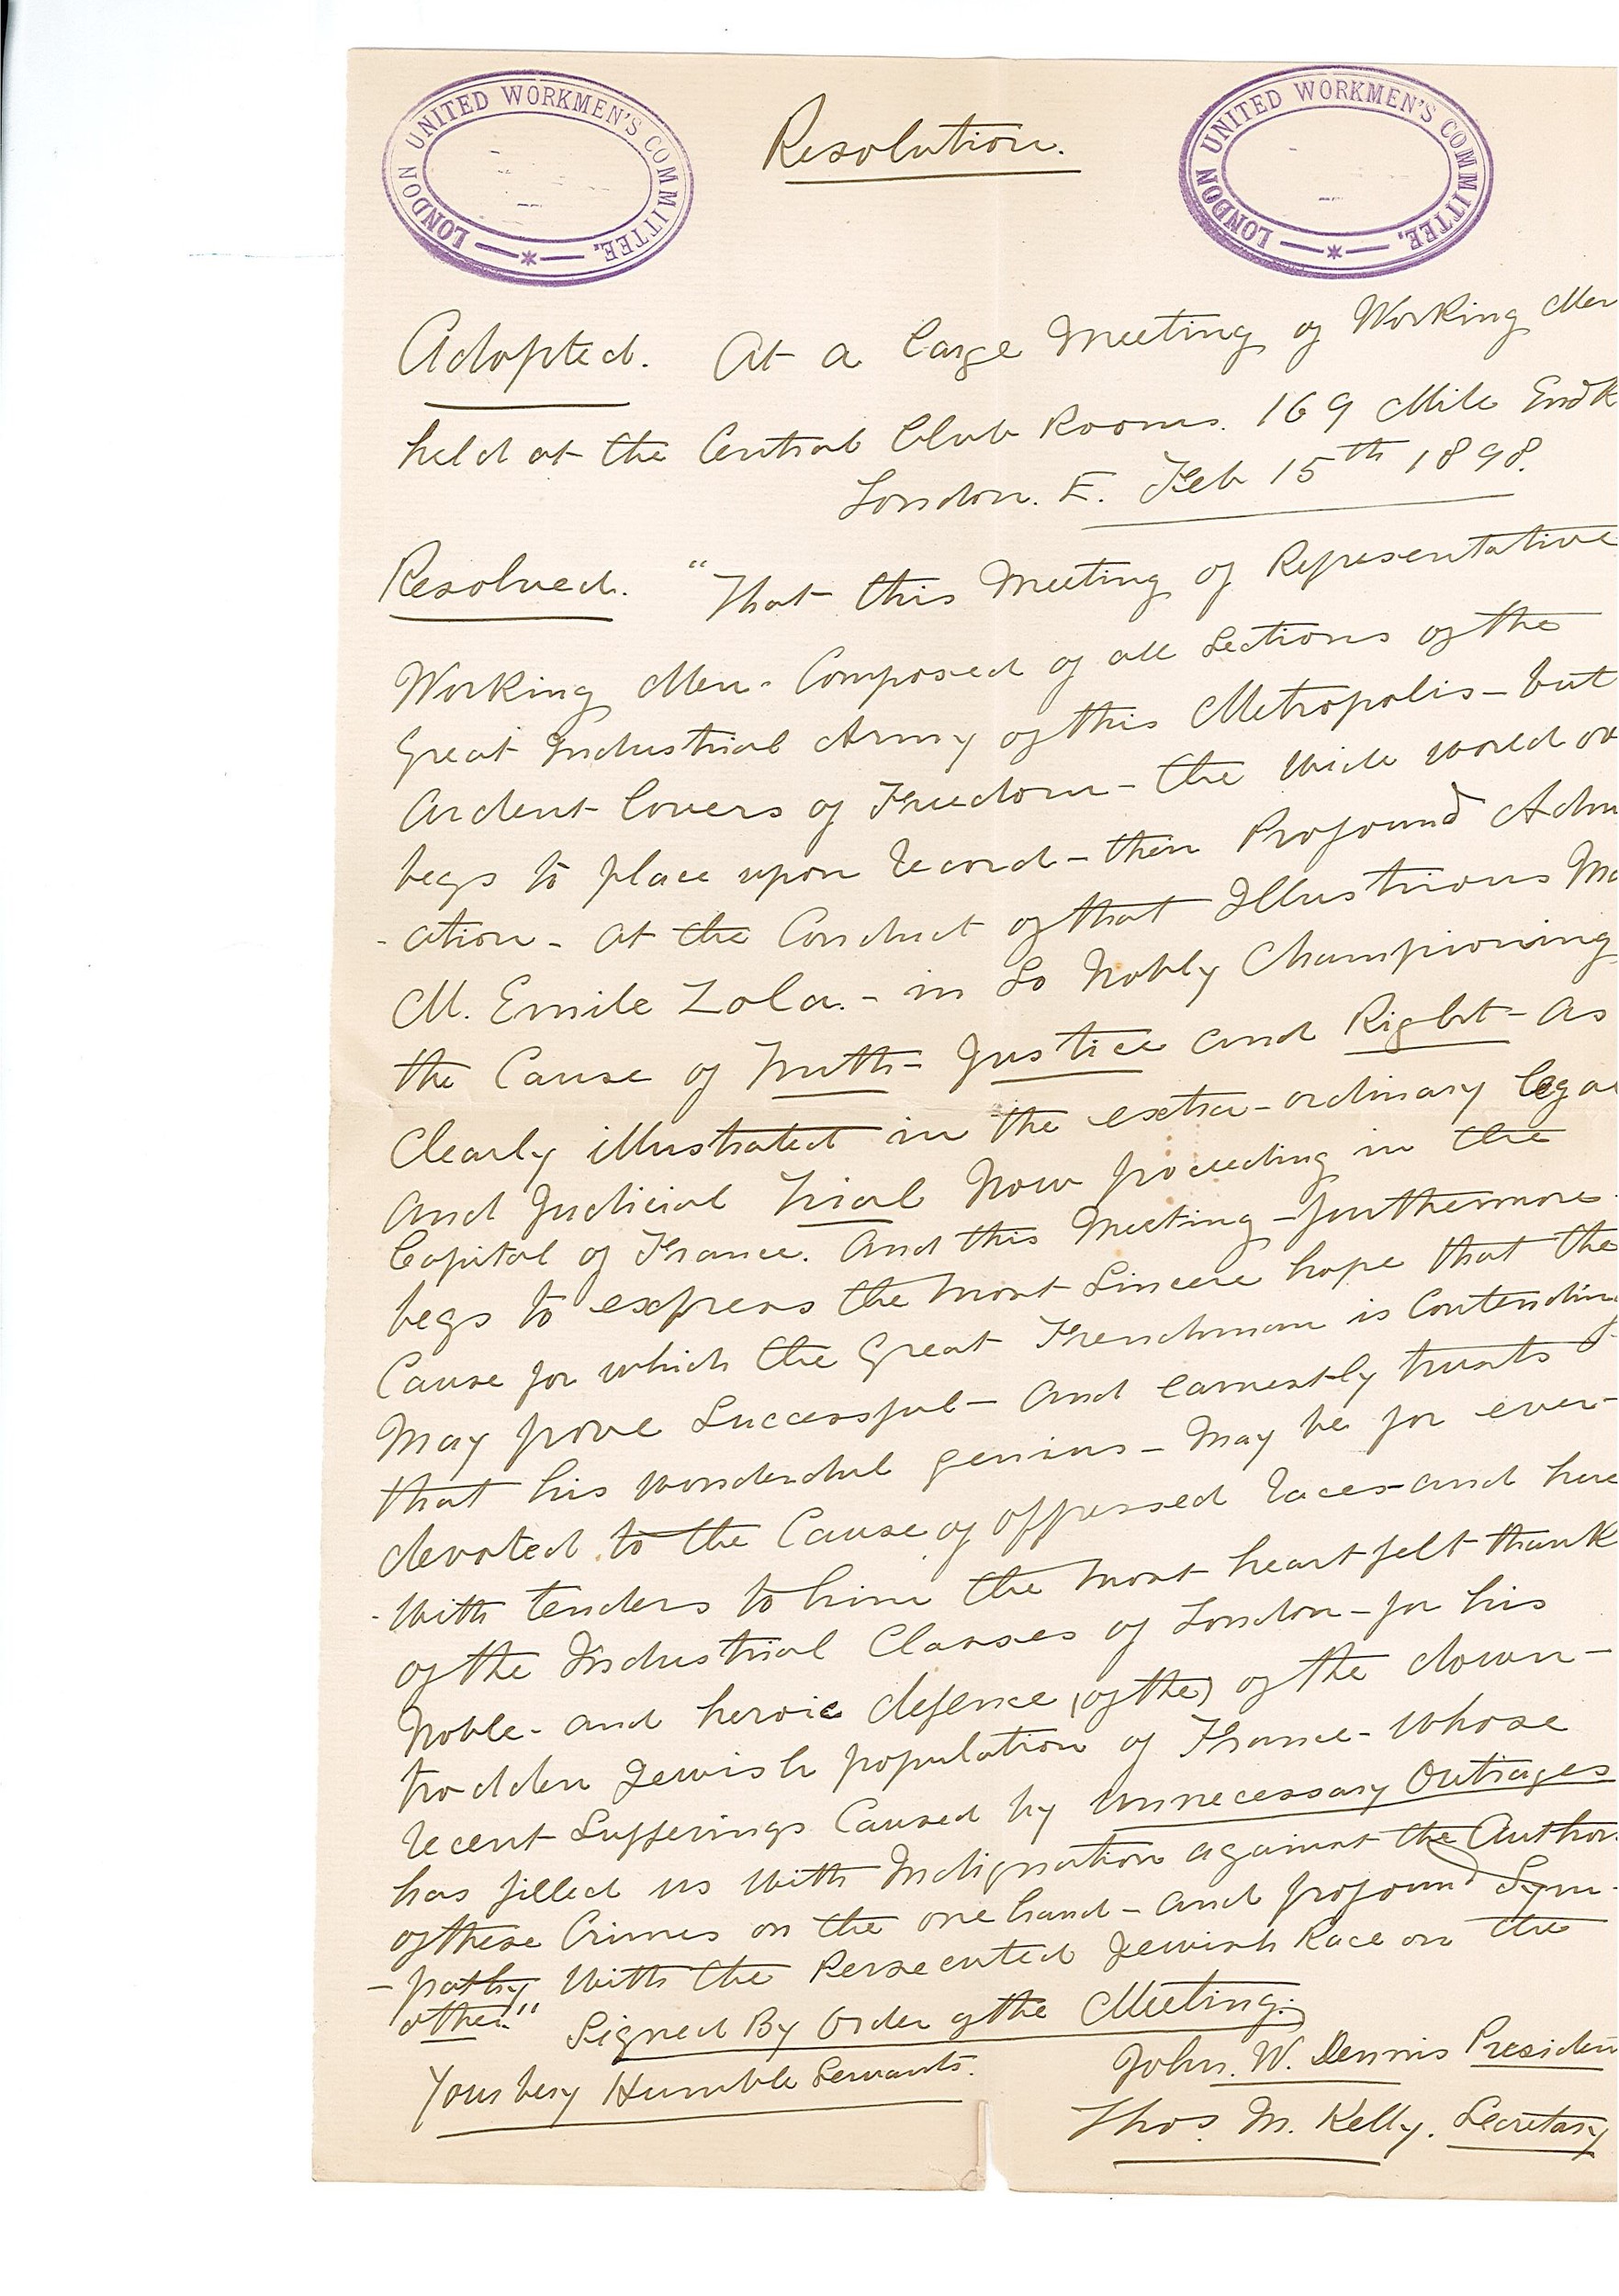 LONDON UNITED WORKMEN'S COMMITTEE.
Resolution.
LONDON UNITED WORKMEN'S COMMITTEE.
Adopted. At a large Meeting of Working Men
held at the Central Club Rooms. 169 Mile End R
London. E. Feb 15th 1898.
Resolved. "That this Meeting of Representative
Working Men - Composed of all Sections of the
Great Industrial Army of this Metropolis - but
Ardent lovers of Freedom - the wide world ov
begs to place upon record - their Profound Adm
-ation - at the Conduct of that Illustrious Ma
M. Emile Zola. - in So Nobly Championing
the Cause of Truth - Justice and Right - as
Clearly illustrated in the extra-ordinary lega
and Judicial Trial Now proceeding in the
Capital of France. And this Meeting - furthermore
begs to express the most Sincere hope that the
Cause for which the Great Frenchman is Contending
May prove Successful - and earnestly trusts
that his wonderful genius - May be for ever -
devoted to the Cause of oppressed races - and here
-with tenders to him the most heartfelt thank
of the Industrial Classes of London - for his
Noble - and heroic defence (of the) of the down -
trodden Jewish population of France - whose
recent Sufferings Caused by unnecessary Outrages
has filled us with Indignation against the Author
of these Crimes on the one hand - and profound Sym -
- pathy with the Persecuted Jewish Race on the
other." Signed By Order of the Meeting.
Yours very Humble Servants.
John. W. Dennis Presiden
Thos. M. Kelly. Secretary